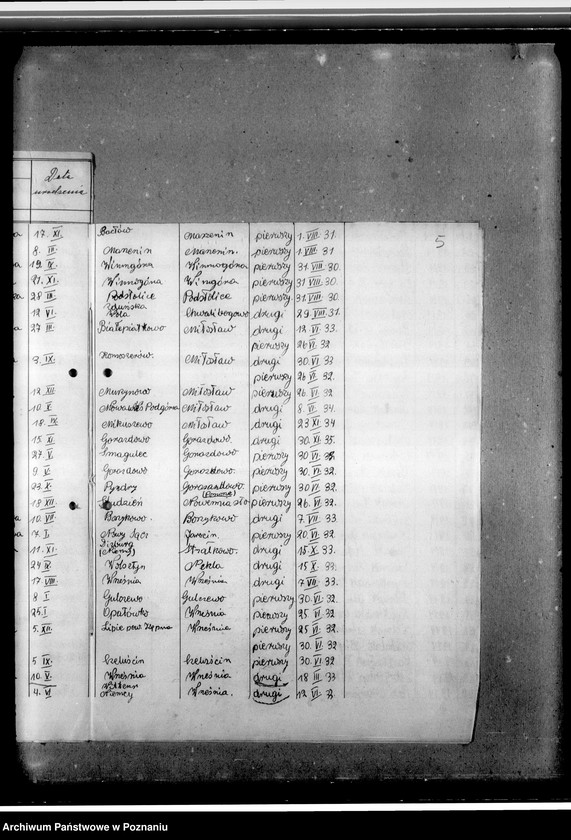 Data
urodzenia
5
17. XI. Bachów Marzenin pierwszy 1. VIII. 31.
8. III. Marzenin Marzenin. pierwszy 1. VIII 31
19. IV. Winnogóra Winnogóra pierwszy 31. VIII. 30.
21. XI. Winnogóra Winnogóra pierwszy 31 VIII. 30.
28 Podstolice Podstolice pierwszy 31. VIII. 30
12 VI. Zduńska Wola Chwalibogowo drugi 29. VIII. 31.
27 III. Białepiątkowo Miłosław drugi 12. VI. 33.
pierwszy 26 VI. 32
3. IX. Miłosław drugi 30. VI 33
pierwszy 26 VI. 32.
12 XII. Murzynowo Miłosław pierwszy 26. VI. 32
10. X. Nowawieś Podgórna Miłosław drugi 8. VI. 34.
18. IV. Mikuszewo Miłosław drugi 23 XI 34
15. XI. Gorazdowo Gorazdowo. drugi 30. XI. 35.
27. V. Smagulec Gorazdowo pierwszy 30 VI.
9. V. Gorazdowo Gorazdowo. pierwszy 30. VI. 32.
23. X. Pyzdry Gorazdowo. pierwszy 30 VI. 32.
18. XII. Studzień pierwszy 26. VI. 32.
10. VII. Borzykowo. Borzykowo drugi 7. VII 33.
17. I. Nowy Sącz Jarocin pierwszy 20. VI. 32.
11. XI. (Niemcy) Strzałkowo. drugi 15. X. 33.
24 IV. Wolsztyn Nekla drugi 15 X. 33.
17. VIII. Września Września drugi 7 VII 33.
8. I Gutowo Gutowo pierwszy 30. VI. 32.
25. I Opatówko Września pierwszy 25 VI 32
5. XII. Lipie pow. Kępno Września pierwszy 25 VI 32
pierwszy 30. VI 32
5 IX. Szeluścin Szeluścin pierwszy 30. VI 32
10. V. Września Września drugi 18 III 33
4. VI Witten Niemcy Września. drugi 12 VI. 3.
Archiwum Państwowe w Poznaniu